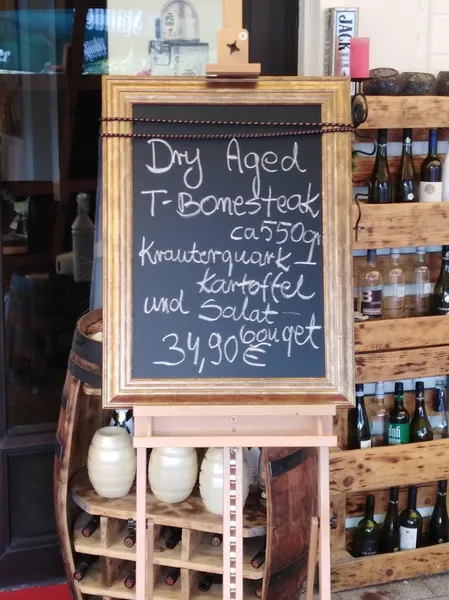 JACK
Dry Aged
T-Bonesteak
ca 550gr
Krauterquark
Kartoffel
und Salat-
bouquet
34,90€